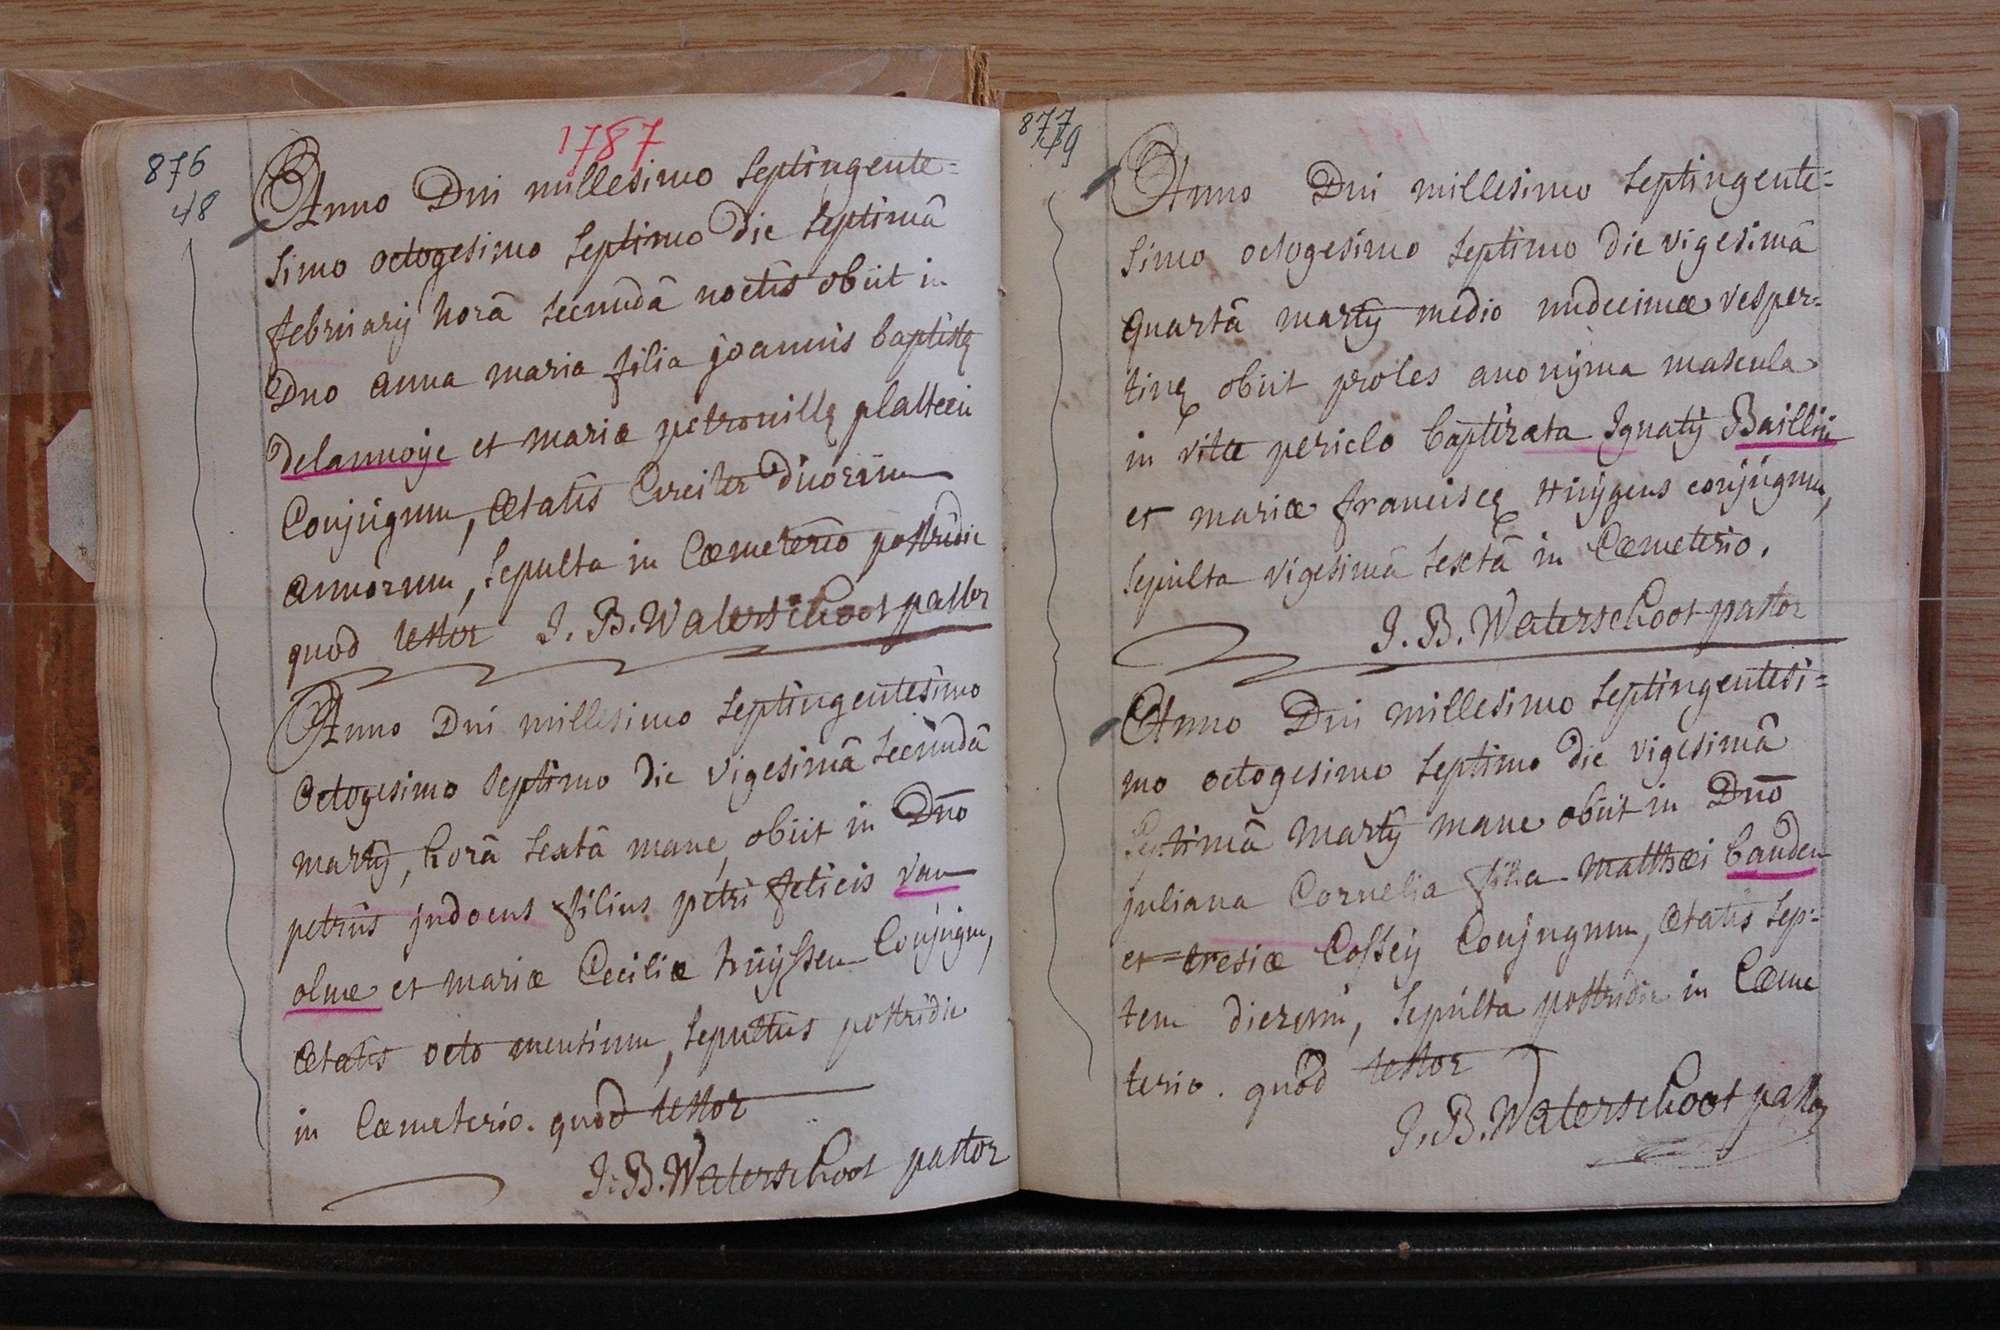 876
48
1787
Anno Dni millesimo septingente=
simo octogesimo septimo die septimâ
februarij horâ secundâ noctis obiit in
Dno anna maria filia joannis baptistę
Delannoije et mariæ petronillę platteeu
Conjugum, ætatis Circiter duorum
annorum, sepulta in Cæmeterio postridie
quod testor J. B. Waterschoot pastor
Anno Dni millesimo septingentesimo
octogesimo septimo die vigesimâ secundâ
martij, horâ sextâ mane, obiit in Dno
petrus judocus filius petri felicis van
olme et mariæ Ceciliæ huijssen Conjugu,
ætatis octo mensium, sepultus postridie
in Cæmeterio. quod testor
J. B. Waterschoot pastor
877
49
Anno Dni millesimo septingente=
simo octogesimo septimo die vigesimâ
quartâ martij medio undecimæ vesper=
tinę obiit proles anonijma mascula
in vitæ periclo baptizata Ignatij Bailliu
et mariæ franciscę Huijgens conjugum,
sepulta vigesimâ sextâ in Cæmeterio.
J. B. Waterschoot pastor
Anno Dni millesimo septingentesi=
mo octogesimo septimo die vigesimâ
septimâ martij mane obiit in Dno
juliana Cornelia filia Matthæi bauden
et tresiæ Cossey Conjugum, ætatis sep=
tem dierum, sepulta postridie in Cæme
terio. quod testor
J. B. Waterschoot pastor